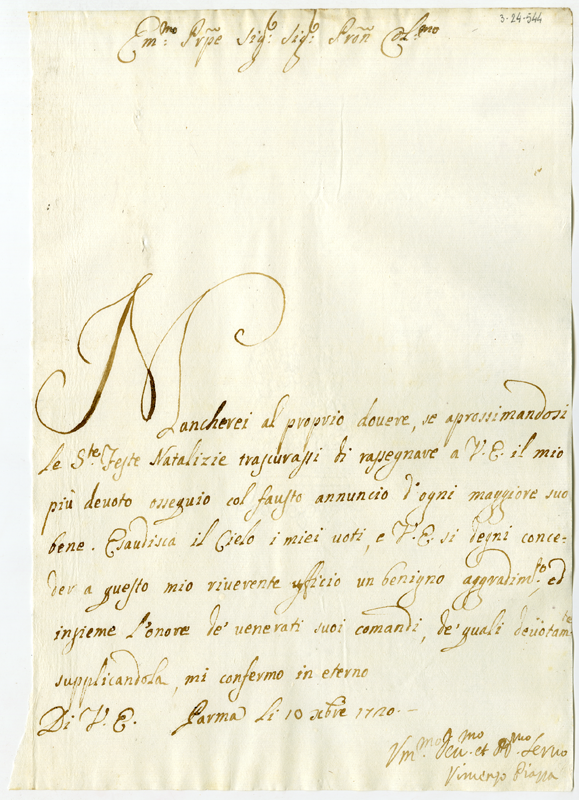 3-24-544
Em.mo Prpe Sig.r Sig.r Pron Col.mo
Mancherei al proprio douere, se aprossimandosi
le S.te Feste Natalizie trascurassi di rassegnare a V.E. il mio
più deuoto ossequio col fausto annuncio d'ogni maggiore suo
bene. Esaudisca il Cielo i miei uoti, e V.E. si degni conce-
der a questo mio riuerente ufficio un benigno aggradim.to, ed
insieme l'onore de' uenerati suoi comandi, de' quali deuotam.te
supplicandola, mi confermo in eterno
Di V. E. Parma li 10 xbre 1720.
Vm.mo Deu.mo et Ob.mo Seruo
Vincenzo Piazza